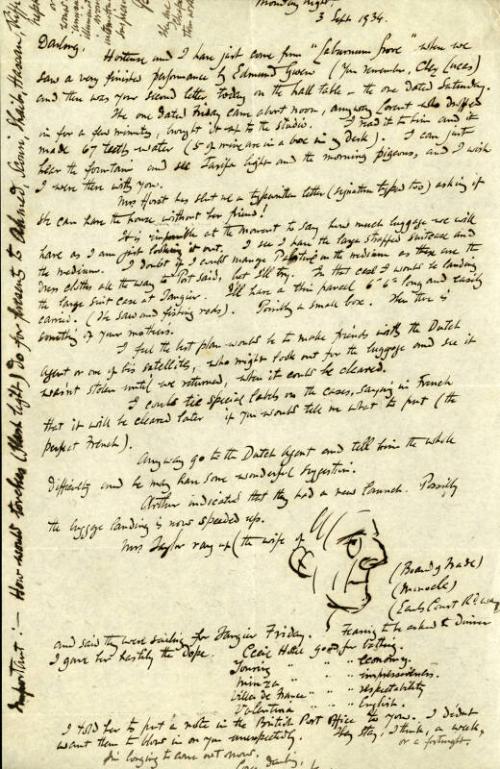 Monday night.
3 Sept. 1934.
Darling,
Hortense and I have just come from "Laburnum Grove" where we
saw a very finished performance by Edmund Gwenn (You remember, Chez (Lucas)
and there was your second letter today on the hall table - the one dated Saturday.
The one dated Friday came about noon, anyway Lorent who dropped
in for a few minutes, brought it up to the studio. I read it to him and it
made 67 teeth water (5 of mine are in a box in my desk). I can just
hear the fountain and see Tarifa light and the morning pigeons, and I wish
I were there with you.
Mrs Horst has sent me a typewritten letter (signature typed too) asking if
she can have the house without her friend!
It is impossible at the moment to say how much luggage we will
have as I am just looking it out. I see I have the large strapped suitcase and
the medium. I doubt if I could manage Palestine on the medium as there are the
dress clothes all the way to Port Said, but I'll try. In that case I would be landing
the large suit case at Tangier. I'll have a thin parcel 6' 6" long and easily
carried. (The saw and fishing rods). Possibly a small box. Then there is
something of your mothers.
I feel the best plan would be to make friends with the Dutch
Agent or one of his satellites, who might look out for the luggage and see it
wasn't stolen until we returned, when it could be cleared.
I could tie special labels on the cases, saying in French
that it will be cleared later if you would tell me what to put (the
perfect French).
Anyway go to the Dutch Agent and tell him the whole
difficulty and he may have some wonderful suggestion.
Arthur indicated that they had a new launch. Possibly
the luggage landing is now speeded up.
Mrs Taylor rang up (the wife of
(Board of Trade)
(Monocle)
(Earls Court Rd way
and said they were sailing for Tangier Friday. Fearing to be asked to dinner
I gave her hastily the dope. Cecil Hotel good for bathing.
Touring " " " economy.
Minzah " " " impressiveness.
Villa de France " " " respectability
Valentina " " " English.
I told her to put a note in the British Post Office to you. I didn't
want them to blow in on you unexpectedly. They stay, I think, a week,
or a fortnight.
I'm longing to come out now.
Love darling,
Important:- How would torches (flash light) do for presents to Ahmed, Selami, Shaib, Hassan,